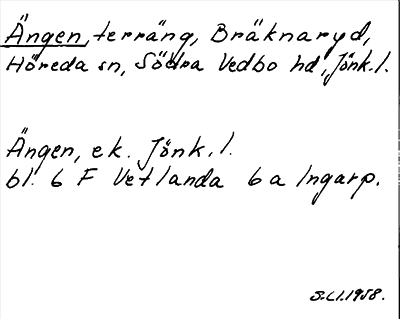 Ängen, terräng, Bräknaryd,
Höreda sn, Södra Vedbo hd, Jönk.l.
Ängen, ek. Jönk.l.
bl. 6 F Vetlanda 6 a Ingarp.
1958.